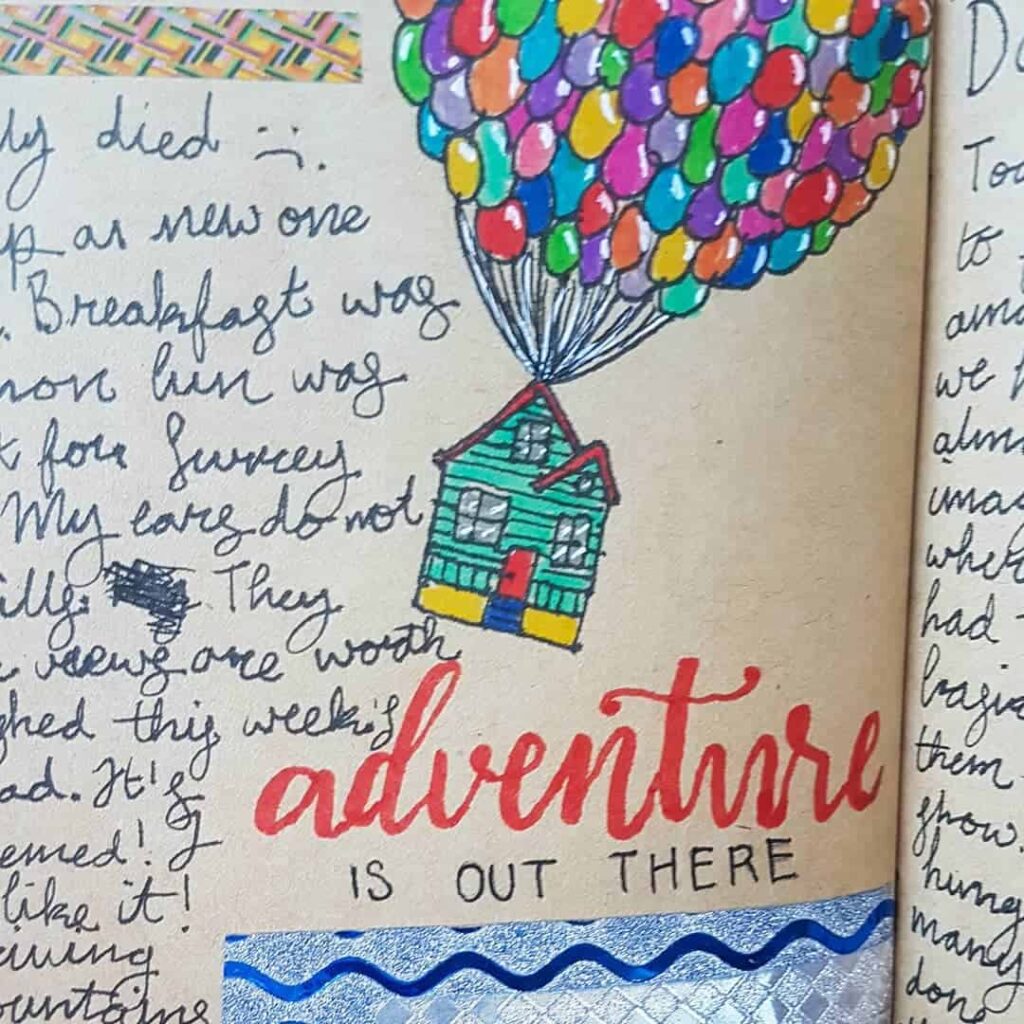 ly died :(.
p as new one
Breakfast was
mon bun was
k for Surrey
My ears do not
They
views are worth
ghed this week's
ad. It's
emed! I
like it!
awing
ountains
adventure
IS OUT THERE
D
To
to
ama
we
alm
imag
when
had
them
show.
hung
many
don